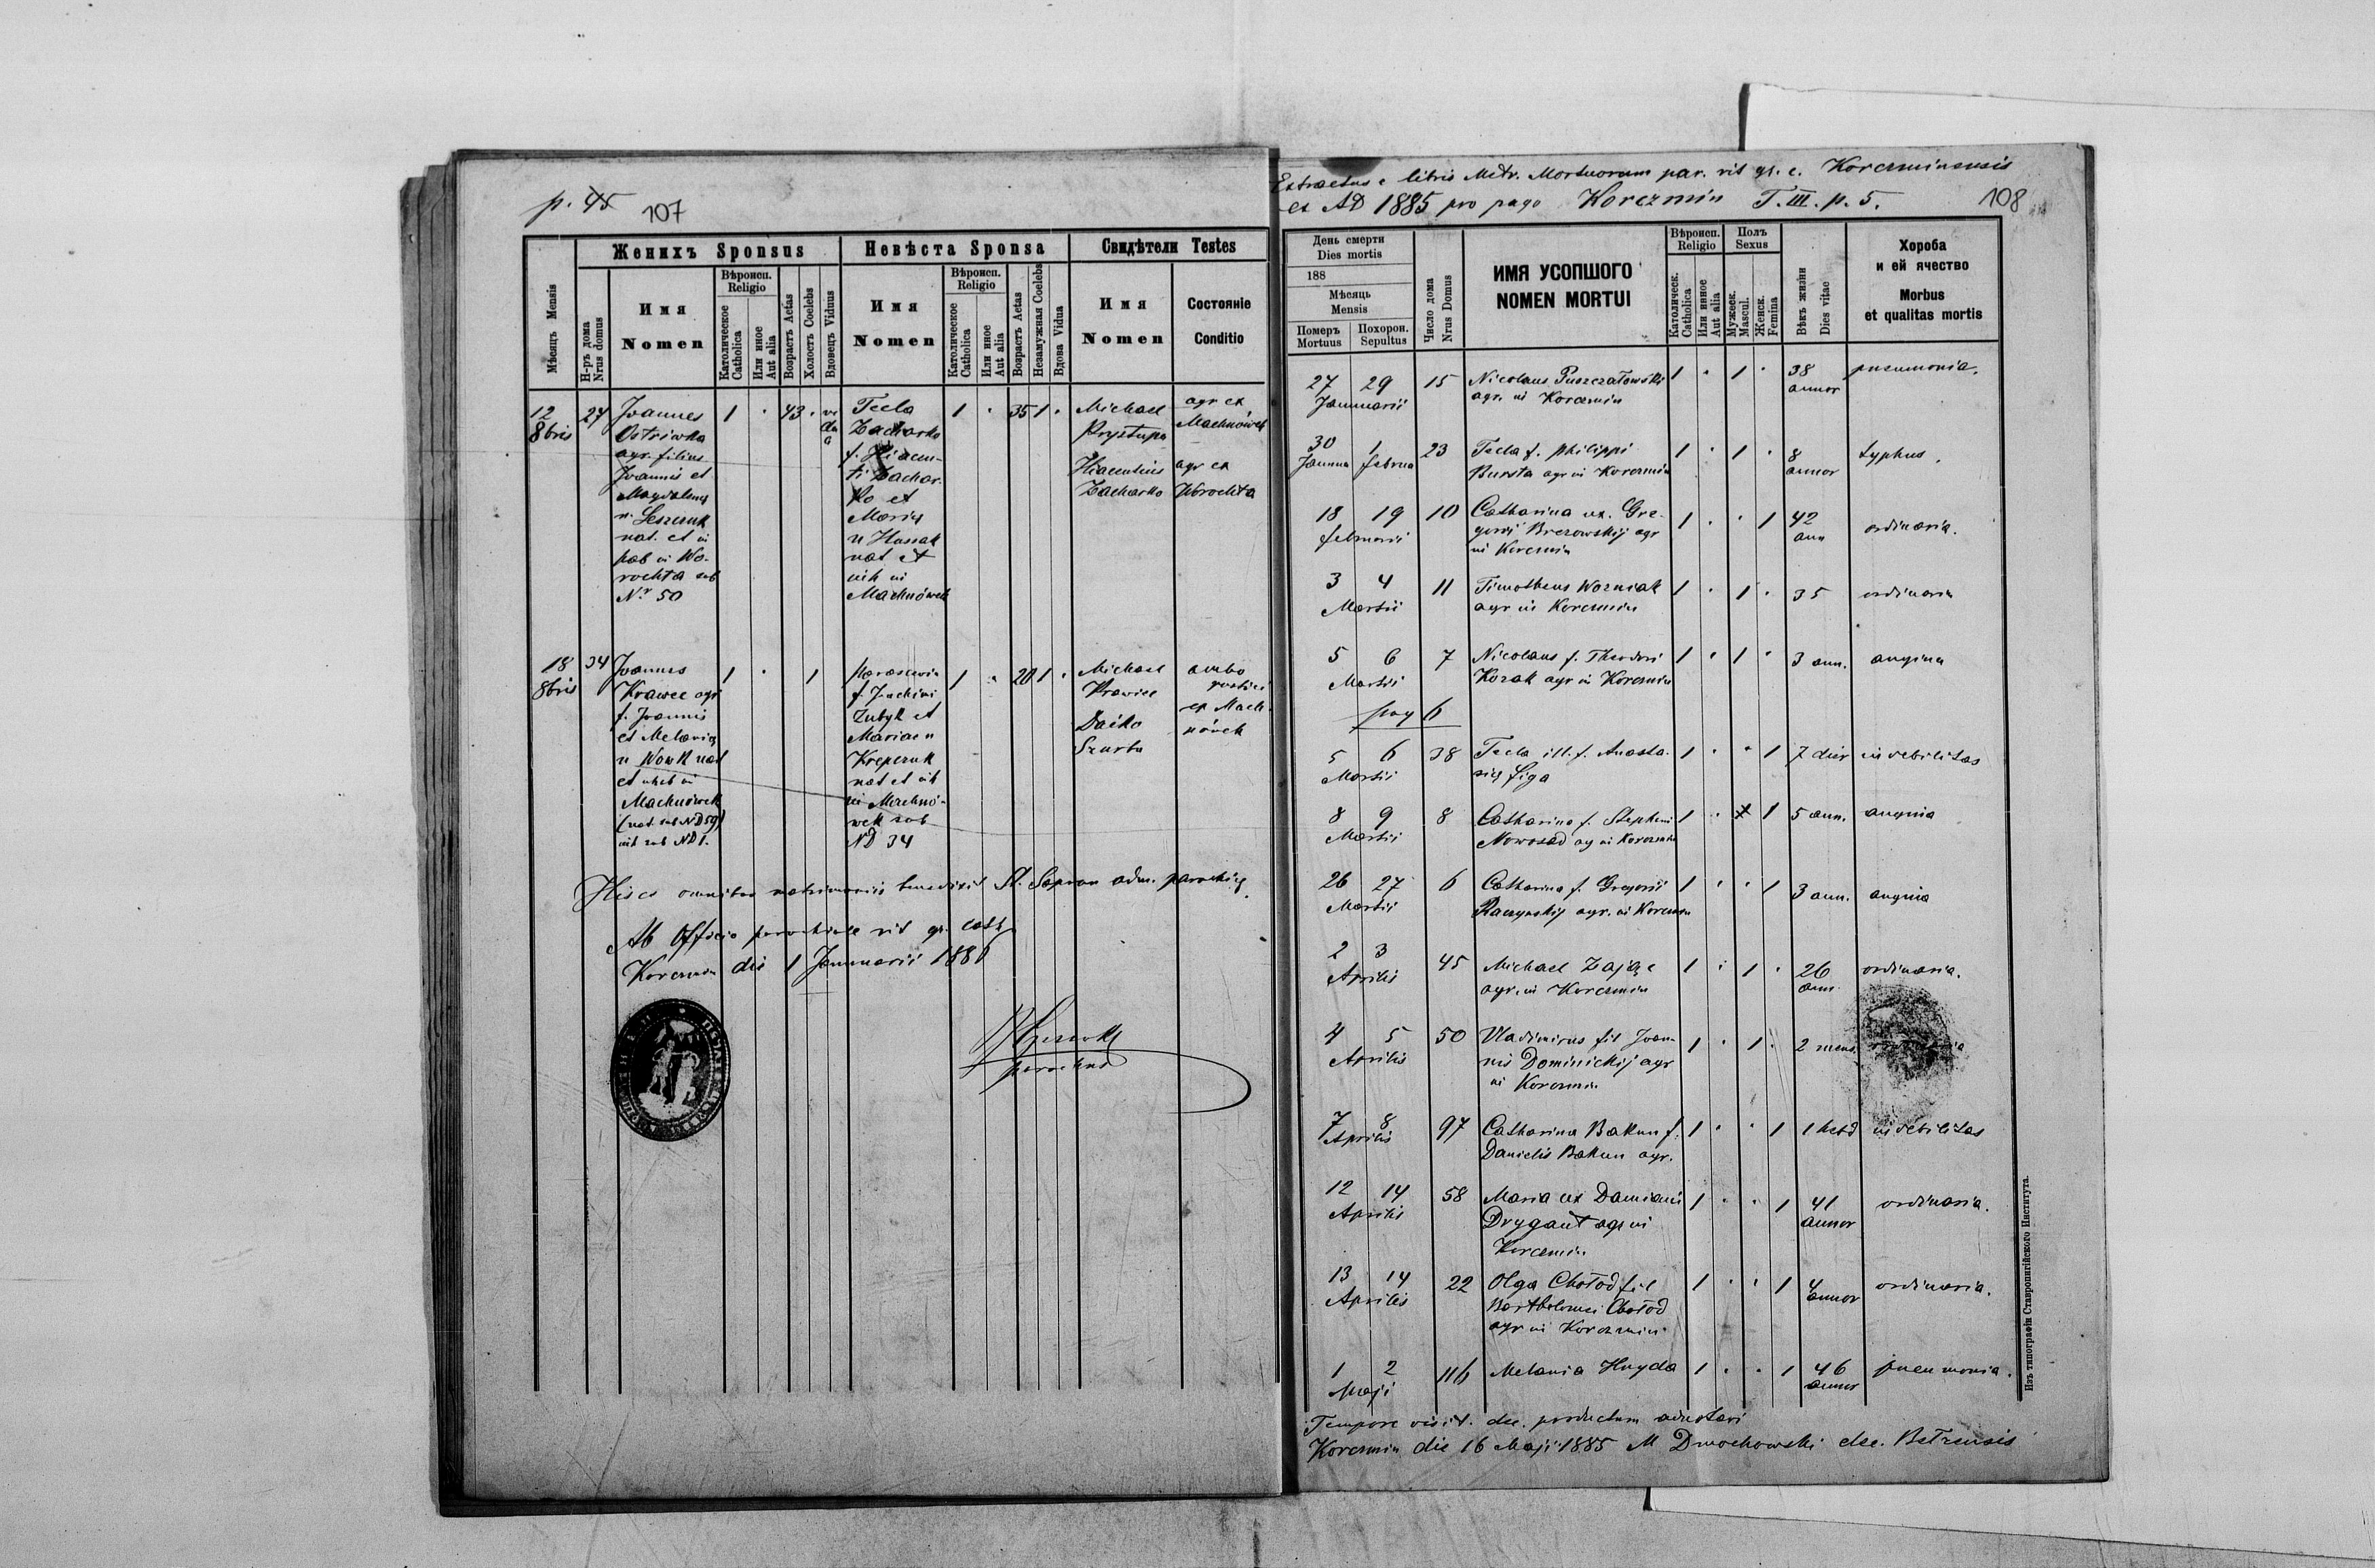 p. 45
107
Женихъ Sponsus
Невѣста Sponsa
Свидѣтели Testes
Мѣсяць Mensis
Н-ръ дома
Nrus domus
Имя
Nomen
Вѣроисп.
Religio
Католическое
Catholica
Или иное
Aut alia
Возрастъ Aetas
Холостъ Coelebs
Вдовецъ Viduus
Имя
Nomen
Вѣроисп.
Religio
Католическое
Catholica
Или иное
Aut alia
Возрастъ Aetas
Незамужная Coelebs
Вдова Vidua
Имя
Nomen
Состоянie
Conditio
12
8bris
27
Joannes
Ostriwka
agr. filius
Joannis et
Magdalenae
n. Leszczuk
nat. et in
hab in Wo-
rochta sub
Nr 50
1 43
Tecla
Zacharko
f. Hiacen-
ti Zachar-
ko et
Maria
n Hussak
nat et
in
Machnówek
1 35 1
Michael
Prystupa
agr ex
Machnówek
Hiacentius
Zacharko
agr ex
Worochta
18
8bris
34
Joannes
Krawec agr
f. Joannis
et Melania
n Wowk nat
et in
Machnówek
(nat. sub ND 59)
sub ND 1.
1 1
Parascevia
f. Joachimi
Zubyk et
Mariae n
Krepczuk
nat et
in Machnó-
wek sub
ND 34
1 20 1
Michael
Krawiec
Dačko
Szurba
ambo
rustici
ex Mach-
nówek
Hisce omnibus matrimoniis benedixit A. Sapron adm. parochiae
Ab Officio parochiale rit gr. cath
Korczmin die 1 Januarii 1886
parochus
Extractus e libris Metr. Mortuorum par. rit gr. c. Korczminensis
ex AD 1885 pro pago Korczmin T. III. p. 5.
108
День смерти
Dies mortis
188
Мѣсяць
Mensis
Померъ
Mortuus
Похорон.
Sepultus
Число дома
Nrus Domus
ИМЯ УСОПШОГО
NOMEN MORTUI
Вѣроисп.
Religio
Католическ.
Catholica
Или инное
Aut alia
Полъ
Sexus
Мужеск.
Mascul.
Женск.
Femina
Вѣкъ жизни
Dies vitae
Хороба
и ей ячество
Morbus
et qualitas mortis
27 29 15 Nicolaus Puszczałowski 1 1 38 pneumonia.
Januarii agr. in Korczmin annor
30 1 23 Tecla f. Philippi 1 1 8 typhus.
Janua februa Bursta agr in Korczmin annor
18 19 10 Catharina ux. Gre- 1 1 42 ordinaria.
februarii gorii Brezowskij agr ann
in Korczmin
3 4 11 Timotheus Wozniak 1 1 35 ordinaria
Martii agr in Korczmin
5 6 7 Nicolaus f. Theodori 1 1 3 ann. angina
Martii Kozak agr in Korczmin
pag 6
5 6 38 Tecla ill. f. Anasta- 1 1 7 dier debilitas
Martii siae Figa
8 9 8 Catharina f. Stephani 1 x 1 5 ann. angina
Martii Nowosad ag in Korczmin
26 27 6 Catharina f. Gregorii 1 1 3 ann. angina
Martii Raczynskij agr. in Korczmin
2 3 45 Michael Zając 1 1 26 ordinaria.
Aprilis agr. in Korczmin ann.
4 5 50 Vladimirus fil Joan- 1 1 2 mens.
Aprilis nis Dominickij agr
in Korczmin
7 8 97 Catharina Bakun f. 1 1 1 hebd debilitas
Aprilis Danielis Bakun agr.
12 14 58 Maria ux Damiani 1 1 41 ordinaria.
Aprilis Drygant agr in annor
Korczmin
13 14 22 Olga Chołod fil 1 1 4 ordinaria.
Aprilis Bartholomei Chołod annor
agr in Korczmin
1 2 116 Melania Huyda 1 1 46 pneumonia.
Maji annor
Tempore visit. dec. productum adnotavi
Korczmin die 16 Maji 1885 M Dmochowski dec. Bełzensis
Изъ типографіи Ставропигійского Института.